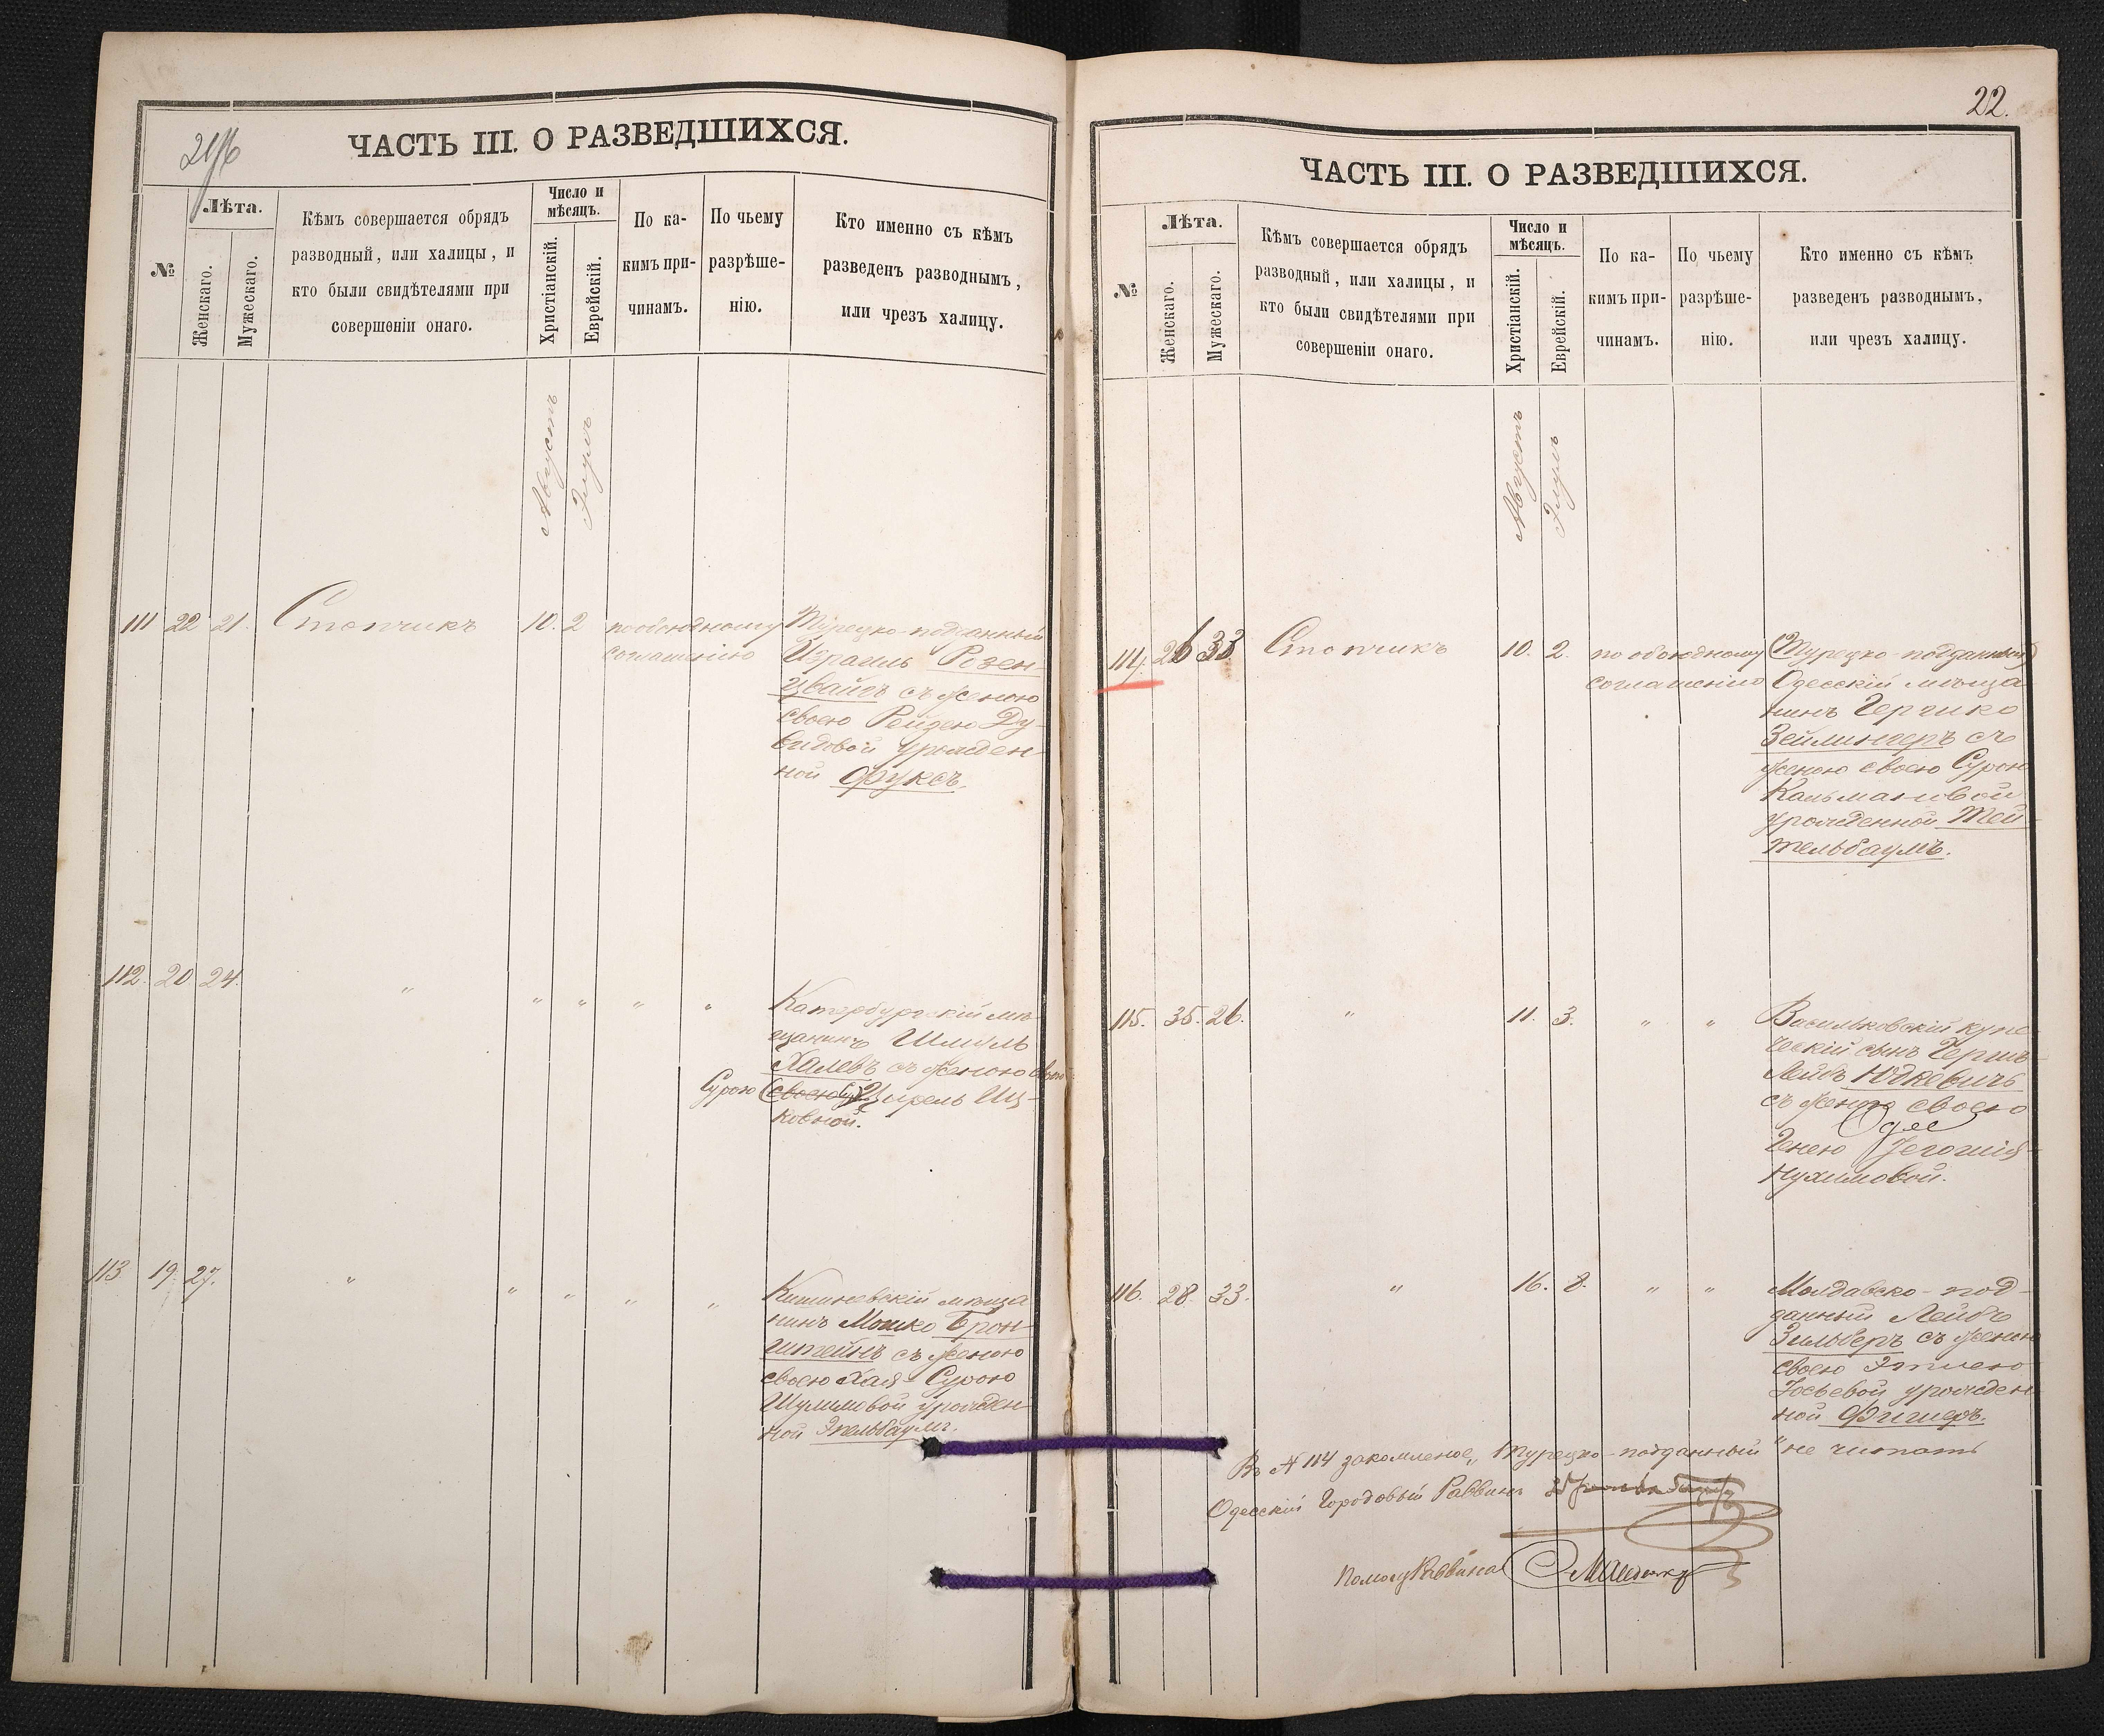 ЧАСТЬ III. О РАЗВЕДШИХСЯ.
№
Лѣта.
Женскаго.
Мужескаго.
Кѣмъ совершается обрядъ
разводный, или халицы, и
кто были свидѣтелями при
совершеніи онаго.
Число и
мѣсяцъ.
Христіанскій.
Еврейскій.
По ка-
кимъ при-
чинамъ.
По чьему
разрѣше-
нію.
Кто именно съ кѣмъ
разведенъ разводнымъ,
или чрезъ халицу.
Августъ
Элулъ
111 22 21. Стопчикъ 10. 2 по обоюдному
соглашенію
Турецко-подданный
Израиль Розен-
цвайгъ съ женою
своею Рейзею Ду-
видовой урожден-
ной Фуксъ.
112. 20 24. " " " " "
Катербургскій мѣ-
щанинъ Шмуль
Халевъ съ женою своею
Сурою (своею) Цирель Иц-
ковной.
113 19. 27. " " " " "
Кишиневскій мѣща
нинъ Мошко Брон-
штейнъ съ женою
своею Хая-Сурою
Шулимовой урожден
ной Эпельбаумъ.
22.
ЧАСТЬ III. О РАЗВЕДШИХСЯ.
№
Лѣта.
Женскаго.
Мужескаго.
Кѣмъ совершается обрядъ
разводный, или халицы, и
кто были свидѣтелями при
совершеніи онаго.
Число и
мѣсяцъ.
Христіанскій.
Еврейскій.
По ка-
кимъ при-
чинамъ.
По чьему
разрѣше-
нію.
Кто именно съ кѣмъ
разведенъ разводнымъ,
или чрезъ халицу.
Августъ
Элулъ
114. 26 33 Стопчикъ 10. 2. по обоюдному
соглашенію
(Турецко-подданный)
Одесскій мѣща
нинъ Гершко
Зейлингеръ съ
женою своею Сурою
Кальмановой
урожденной Тей-
тельбаумъ.
115. 35. 26. " 11. 3. " "
Васильковскій купе-
ческій сынъ Гершъ-
Лейбъ Юдкевичъ
съ женою своею
Генею
Нухимовой.
116. 28. 33. " 16. 8. " "
Молдавско-под-
данный Лейбъ
Зильберъ съ женою
своею Этлею
Іосьевой урожден
ной Фишеръ.
Въ № 114 закомленое „Турецко-подданный" не читать
Одесскій Городовый Раввинъ
Помощ Раввина